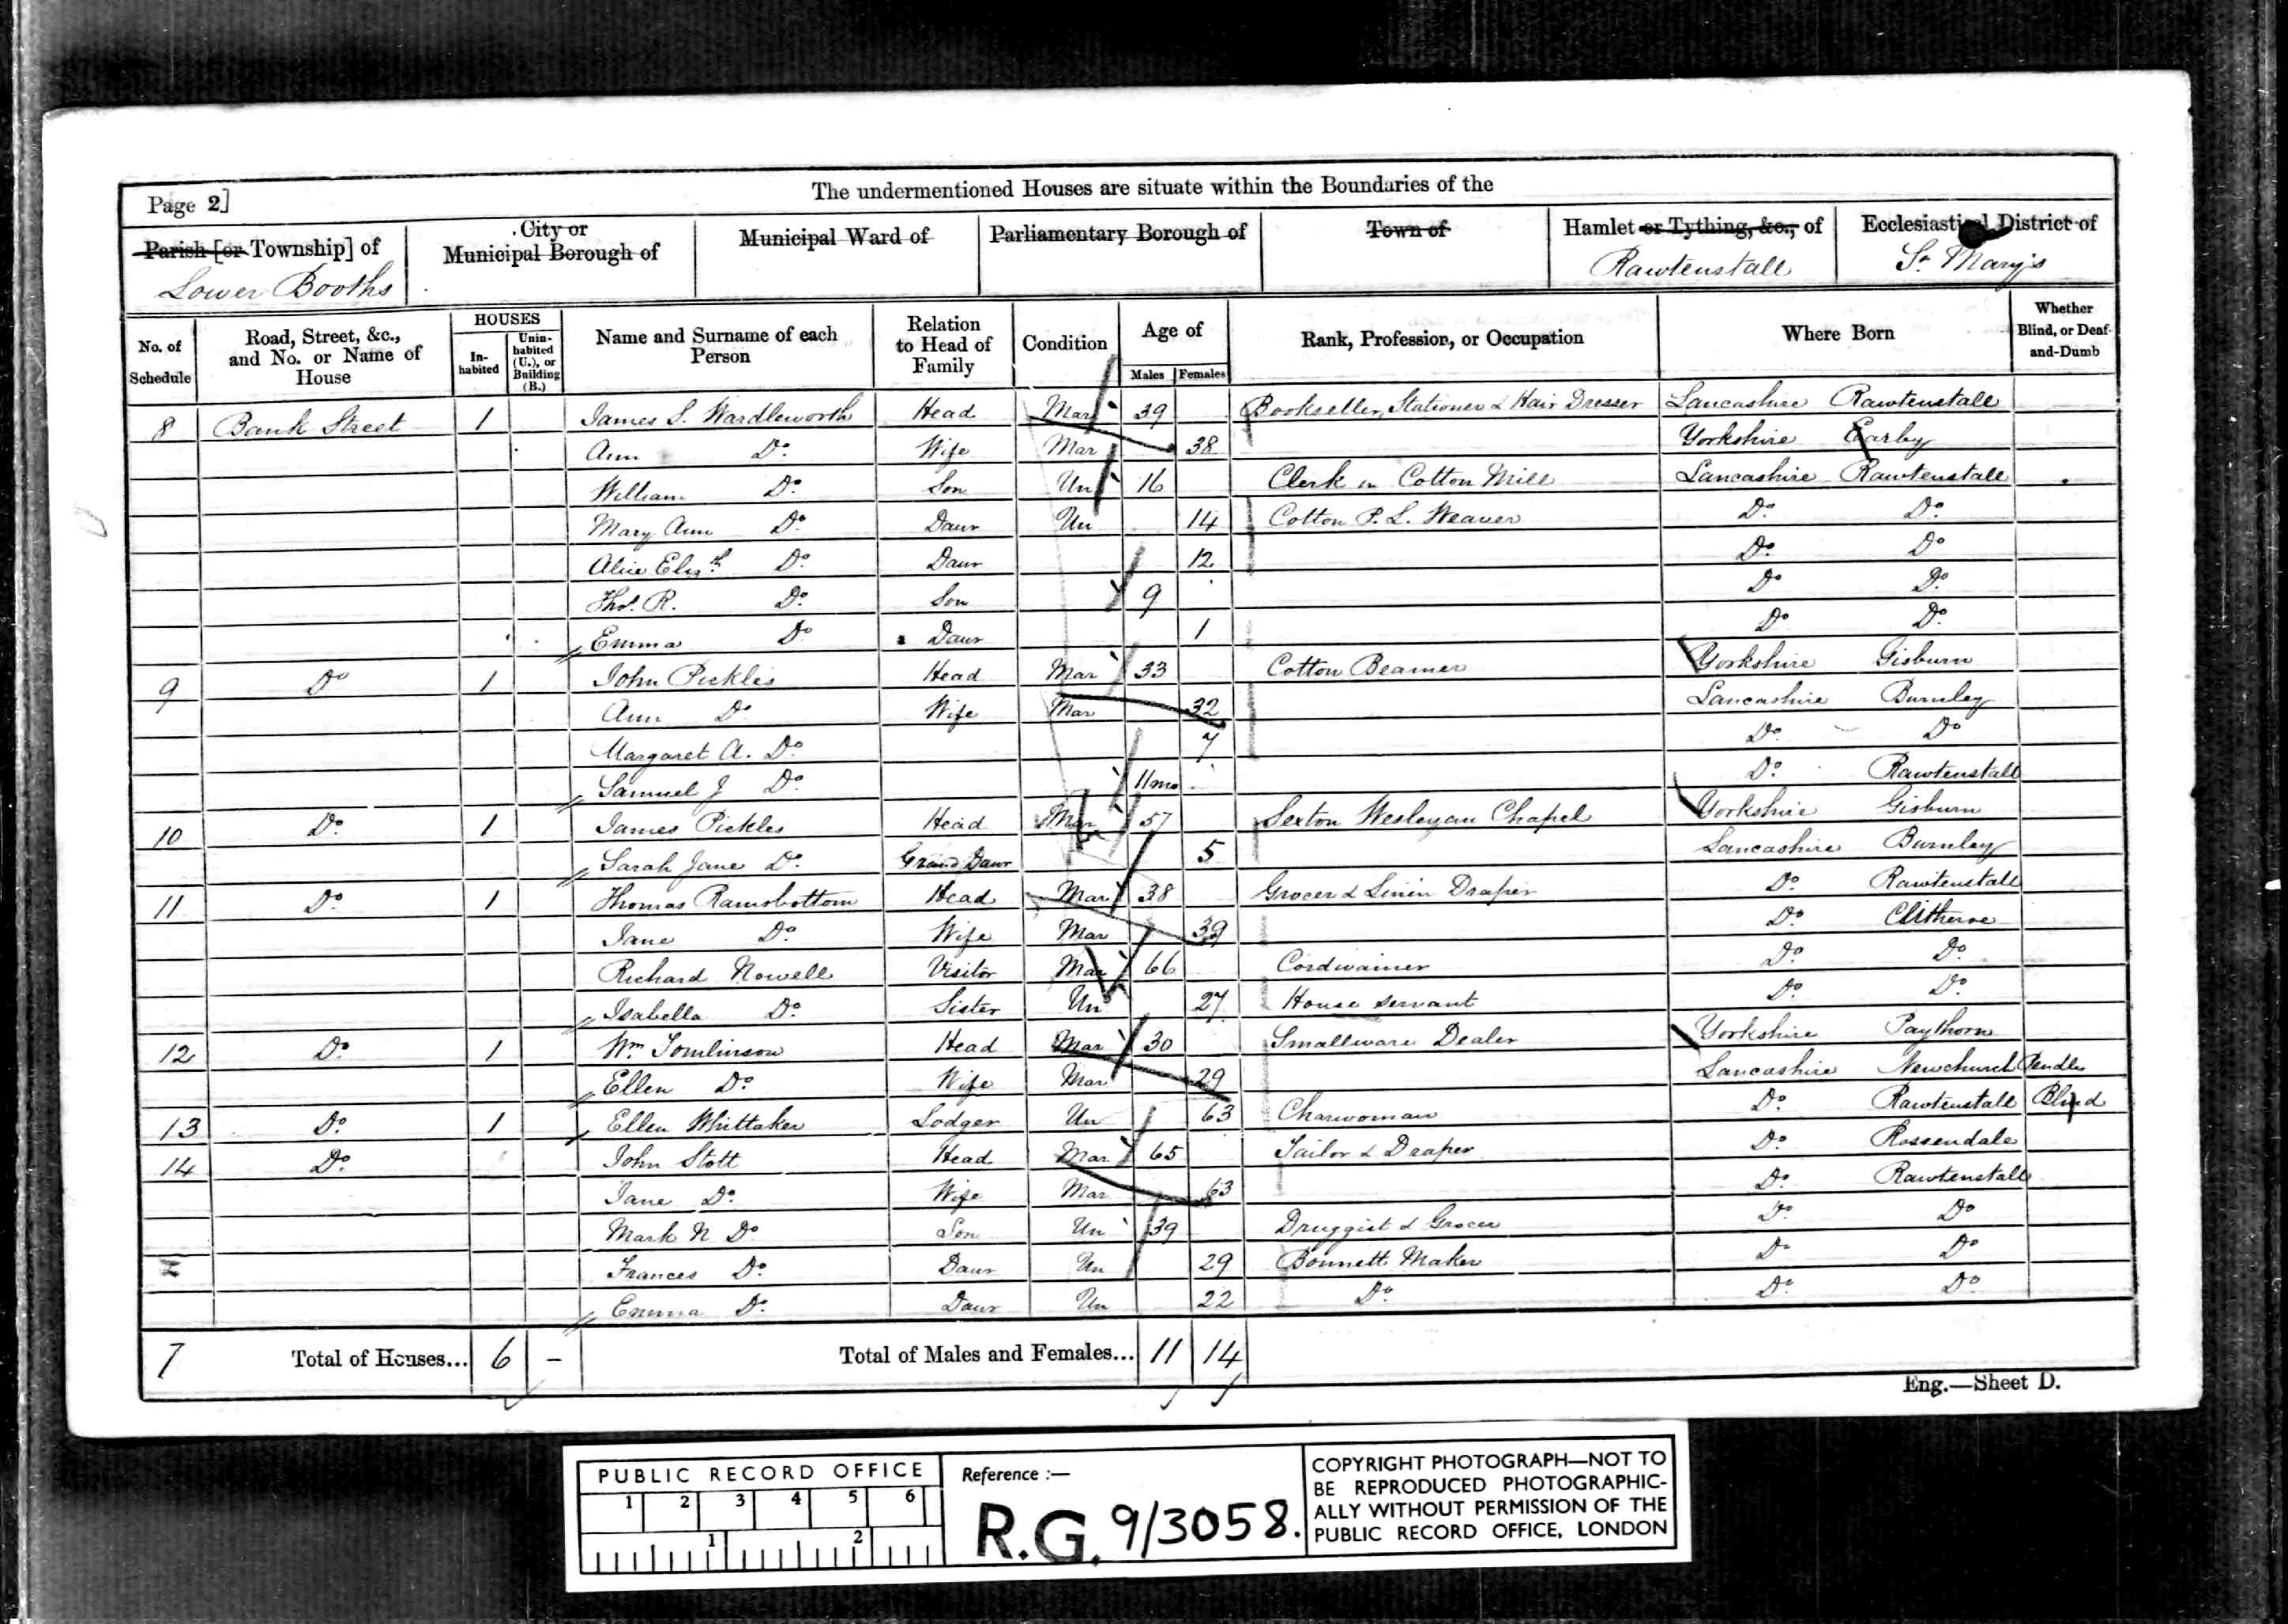 Page 2]
The undermentioned Houses are situate within the Boundaries of the
Parish [or Township] of
City or Municipal Borough of
Municipal Ward of
Parliamentary Borough of
Town of
Hamlet or Tything, &c., of
Ecclesiastical District of
Lower Booths
Rawtenstall
St Mary's
No. of Schedule
Road, Street, &c., and No. or Name of House
HOUSES
In-habited
Unin-habited (U.), or Building (B.)
Name and Surname of each Person
Relation to Head of Family
Condition
Age of
Males
Females
Rank, Profession, or Occupation
Where Born
Whether Blind, or Deaf-and-Dumb
8 Bank Street 1 James S. Wardleworth Head Mar 39 Bookseller, Stationer & Hair Dresser Lancashire Rawtenstall
Ann Do. Wife Mar 38 Yorkshire Earby
William Do. Son Un 16 Clerk in Cotton Mill Lancashire Rawtenstall
Mary Ann Do. Daur Un 14 Cotton P. L. Weaver Do. Do.
Alice Elizth Do. Daur 12 Do. Do
Thos. R. Do. Son 9 Do Do.
Emma Do Daur 1 Do Do.
9 Do 1 John Pickles Head Mar 33 Cotton Beamer Yorkshire Gisburn
Ann Do. Wife Mar 32 Lancashire Burnley
Margaret A. Do. 7 Do. Do
Samuel J Do. 11mo Do. Rawtenstall
10 Do. 1 James Pickles Head Mar 57 Sexton Wesleyan Chapel Yorkshire Gisburn
Sarah Jane Do. Grand Daur 5 Lancashire Burnley
11 Do. 1 Thomas Ramsbottom Head Mar 38 Grocer & Linen Draper Do. Rawtenstall
Jane Do. Wife Mar 39 Do. Clitheroe
Richard Nowell Visitor Mar 66 Cordwainer Do. Do.
Isabella Do. Sister Un 27 House servant Do. Do.
12 Do. 1 Wm Tomlinson Head Mar 30 Smallware Dealer Yorkshire Paythorn
Ellen Do. Wife Mar 29 Lancashire Newchurch Pendle
13 Do. 1 Ellen Whittaker Lodger Un 63 Charwoman Do. Rawtenstall Blind
14 Do. John Stott Head Mar 65 Tailor & Draper Do. Rossendale
Jane Do. Wife Mar 63 Do. Rawtenstall
Mark N Do Son Un 39 Druggist & Grocer Do. Do
Frances Do. Daur Un 29 Bonnett Maker Do Do
Emma Do. Daur Un 22 Do. Do. Do.
7 Total of Houses... 6 – Total of Males and Females... 11 14
Eng.—Sheet D.
PUBLIC RECORD OFFICE
1 2 3 4 5 6
1 2
Reference :—
R.G. 9/3058.
COPYRIGHT PHOTOGRAPH—NOT TO
BE REPRODUCED PHOTOGRAPHIC-
ALLY WITHOUT PERMISSION OF THE
PUBLIC RECORD OFFICE, LONDON